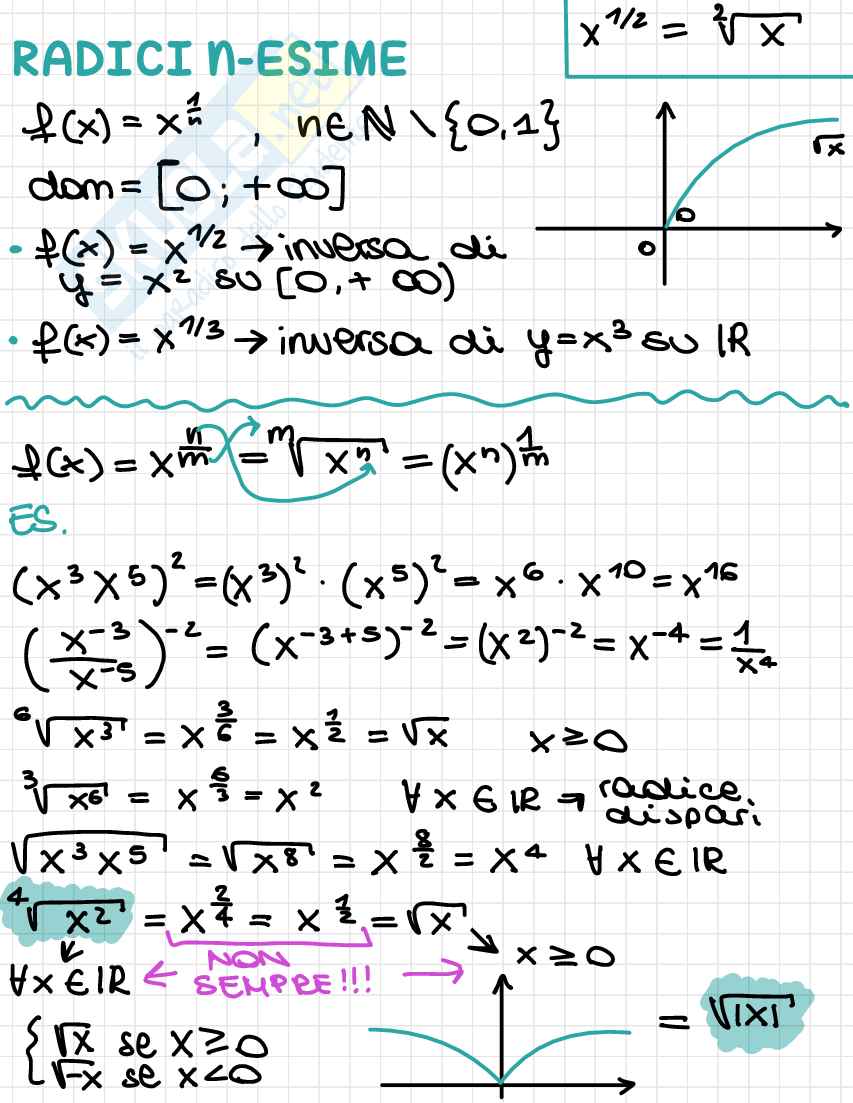 x^{1/2} = ²√x
RADICI N-ESIME
f(x) = x^{1/n} , n ∈ ℕ \ {0,1}
dom = [0 ; +∞]
√x
0
0
• f(x) = x^{1/2} → inversa di
y = x² su [0, + ∞)
• f(x) = x^{1/3} → inversa di y = x³ su ℝ
f(x) = x^{n/m} = ᵐ√(xⁿ) = (xⁿ)^{1/m}
ES.
(x³ x⁵)² = (x³)² · (x⁵)² = x⁶ · x¹⁰ = x¹⁶
(x⁻³/x⁻⁵)⁻² = (x⁻³⁺⁵)⁻² = (x²)⁻² = x⁻⁴ = 1/x⁴
⁶√(x³) = x^{3/6} = x^{1/2} = √x x ≥ 0
³√(x⁶) = x^{6/3} = x² ∀ x ∈ ℝ → radice
dispari
√(x³ x⁵) = √(x⁸) = x^{8/2} = x⁴ ∀ x ∈ ℝ
⁴√(x²) = x^{2/4} = x^{1/2} = √x → x ≥ 0
∀ x ∈ ℝ ← NON
SEMPRE!!! →
= √|x|
{ √x se x ≥ 0
√-x se x < 0